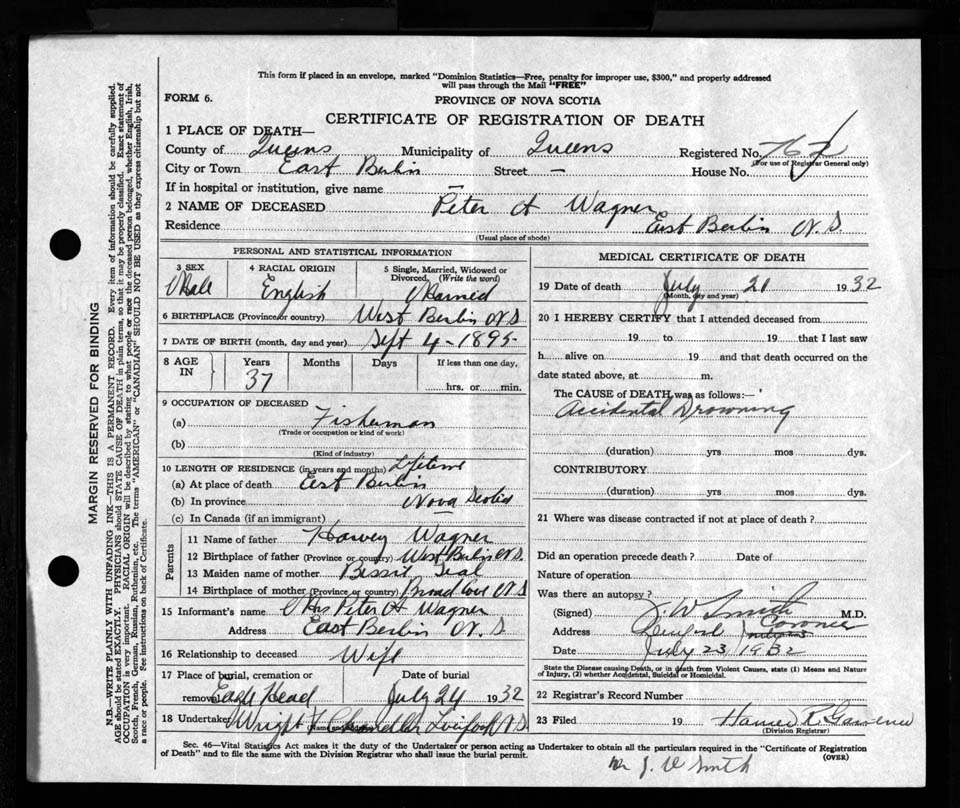 This form if placed in an envelope, marked "Dominion Statistics—Free, penalty for improper use, $300," and properly addressed
will pass through the Mail "FREE"
FORM 6.
PROVINCE OF NOVA SCOTIA
CERTIFICATE OF REGISTRATION OF DEATH
1 PLACE OF DEATH—
County of Queens Municipality of Queens Registered No.
(For use of Registrar General only)
City or Town East Berlin Street — House No.
If in hospital or institution, give name —
2 NAME OF DECEASED Peter A Wagner
Residence East Berlin N.S.
(Usual place of abode)
PERSONAL AND STATISTICAL INFORMATION
3 SEX 4 RACIAL ORIGIN 5 Single, Married, Widowed or Divorced. (Write the word)
Male English Married
6 BIRTHPLACE (Province or country) West Berlin N.S
7 DATE OF BIRTH (month, day and year) Sept 4 - 1895
8 AGE IN Years Months Days If less than one day,
37 hrs. or min.
9 OCCUPATION OF DECEASED
(a) Fisherman
(Trade or occupation or kind of work)
(b)
(Kind of industry)
10 LENGTH OF RESIDENCE (in years and months) Lifetime
(a) At place of death East Berlin
(b) In province Nova Scotia
(c) In Canada (if an immigrant) —
Parents
11 Name of father Harvey Wagner
12 Birthplace of father (Province or country) West Berlin N.S.
13 Maiden name of mother Bessie Teal
14 Birthplace of mother (Province or country) Broad Cove N.S
15 Informant's name Mrs Peter A Wagner
Address East Berlin N.S
16 Relationship to deceased Wife
17 Place of burial, cremation or removal Date of burial
Eagle Head July 24 1932
18 Undertaker Wright & Chandler Liverpool N.S
MEDICAL CERTIFICATE OF DEATH
19 Date of death July 21 1932
(Month, day and year)
20 I HEREBY CERTIFY that I attended deceased from
19 to 19 that I last saw
h alive on 19 and that death occurred on the
date stated above, at m.
The CAUSE of DEATH was as follows:—
Accidental Drowning
(duration) yrs mos dys.
CONTRIBUTORY
(duration) yrs. mos. dys.
21 Where was disease contracted if not at place of death?
Did an operation precede death? Date of
Nature of operation
Was there an autopsy?
(Signed) J. W Smith M.D.
Coroner
Address
Date July 23 1932
State the Disease causing Death, or in death from Violent Causes, state (1) Means and Nature
of Injury, (2) whether Accidental, Suicidal or Homicidal.
22 Registrar's Record Number
23 Filed 19 R
(Division Registrar)
Sec. 46—Vital Statistics Act makes it the duty of the Undertaker or person acting as Undertaker to obtain all the particulars required in the "Certificate of Registration
of Death" and to file the same with the Division Registrar who shall issue the burial permit. (OVER)
Dr J. W Smith
MARGIN RESERVED FOR BINDING
N.B.—WRITE PLAINLY WITH UNFADING INK—THIS IS A PERMANENT RECORD. Every item of information should be carefully supplied.
AGE should be stated EXACTLY. PHYSICIANS should STATE CAUSE OF DEATH in plain terms, so that it may be properly classified. Exact statement of
OCCUPATION is very important. RACIAL ORIGIN will be described by stating to what people or race the deceased person belonged, whether English, Irish,
Scotch, French, German, Russian, Ruthenian, etc. The terms "AMERICAN" or "CANADIAN" SHOULD NOT BE USED as they express citizenship but not
a race or people. See instructions on back of Certificate.